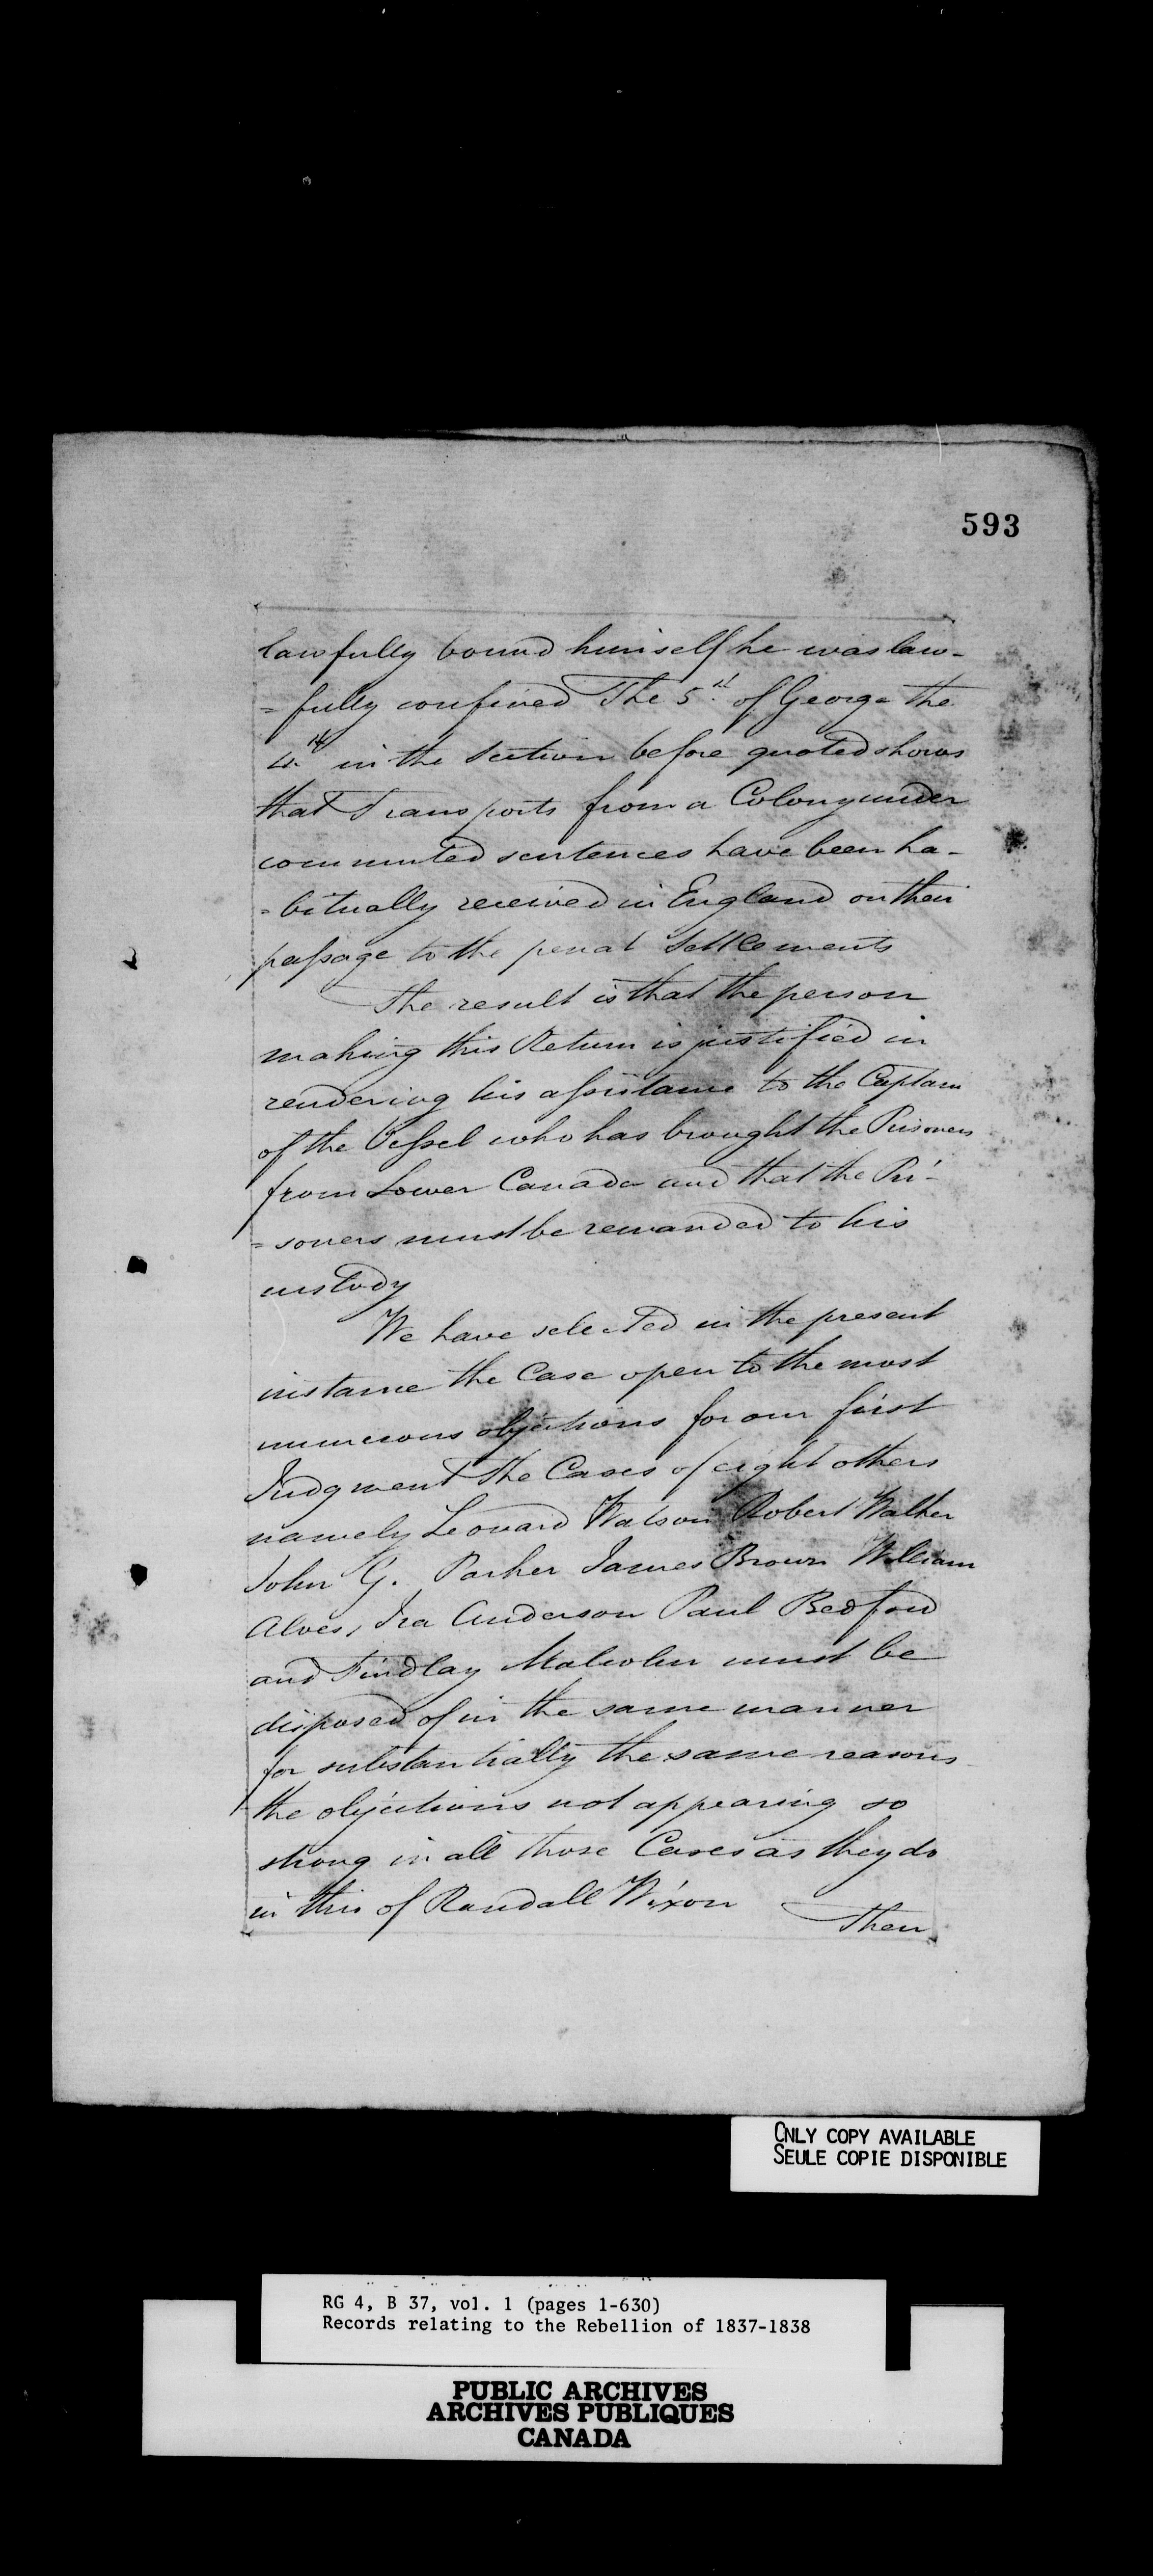 593
lawfully bound himself he was law-
= fully confined The 5th of George the
4th in the Section before quoted shows
that Transports from a Colony under
commuted sentences have been ha-
= bitually received in England on their
passage to the penal Settlements
The result is that the person
making this Return is justified in
rendering his assistance to the Captain
of the Vessel who has brought the Prisoners
from Lower Canada and that the Pri-
= soners must be remanded to his
custody
We have selected in the present
instance the Case open to the most
numerous objections for our first
Judgment The Cases of eight others
namely Leonard Watson Robert Walker
John G. Parker James Brown William
Alves, Ira Anderson Paul Bedford
and Findlay Malcolm must be
disposed of in the same manner
for substantially the same reasons
the objections not appearing so
strong in all those Cases as they do
in this of Randall Wixon
Then
ONLY COPY AVAILABLE
SEULE COPIE DISPONIBLE
RG 4, B 37, vol. 1 (pages 1-630)
Records relating to the Rebellion of 1837-1838
PUBLIC ARCHIVES
ARCHIVES PUBLIQUES
CANADA